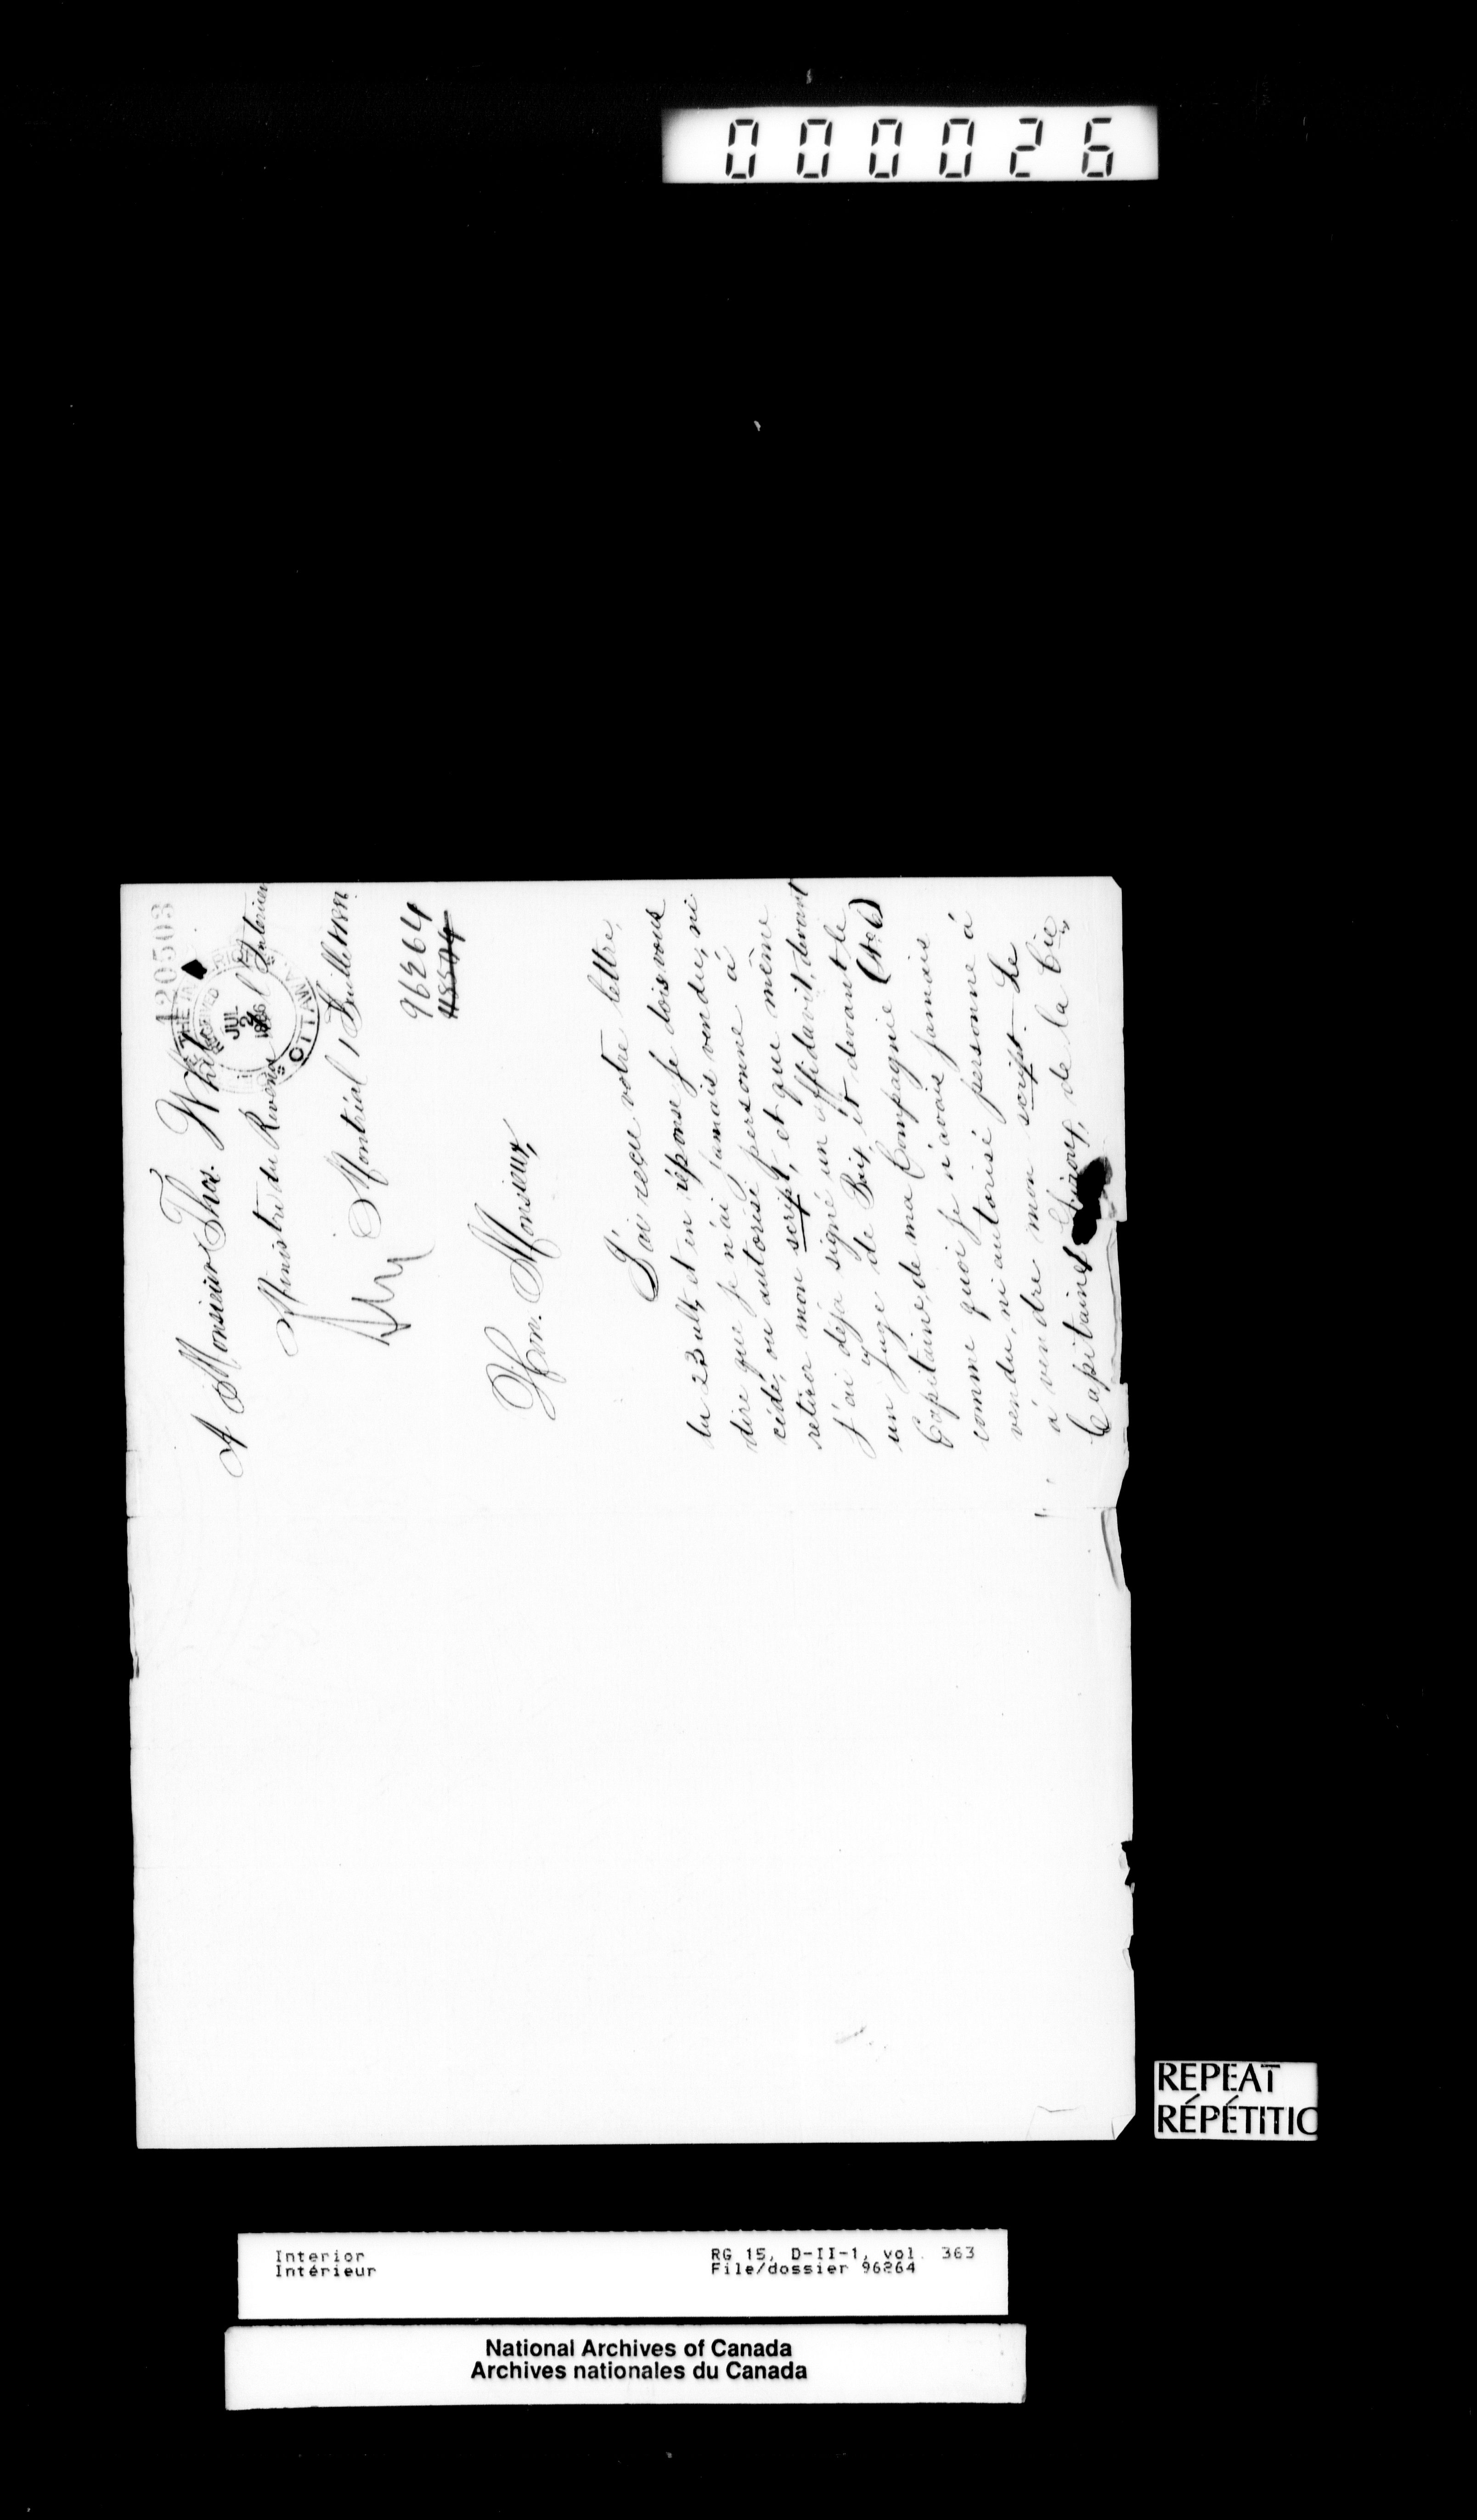 000026
120503
THE INTERIOR
RECEIVED
JUL
2
1886
OTTAWA
A Monsieur Thos. White
Ministre du Revenu de l'Intérieur
Montréal 1 Juillet 1886
96264
Hon. Monsieur,
J'ai reçu votre lettre,
du 23 ult, et en réponse je dois vous
dire que je n'ai jamais vendu, ni
cédé, ou autorisé personne à
retirer mon script, et que même
j'ai déja signé un affidavit, devant
un Juge de Paix, et devant le
Capitaine, de ma Compagnie (No 6)
comme quoi je n'avais jamais
vendu, ni autorisé personne à
à vendre mon script. Le
Capitaine Giroux, de la Cie,
REPEAT
RÉPÉTITIO
Interior
Intérieur
RG 15, D-II-1, vol. 363
File/dossier 96264
National Archives of Canada
Archives nationales du Canada